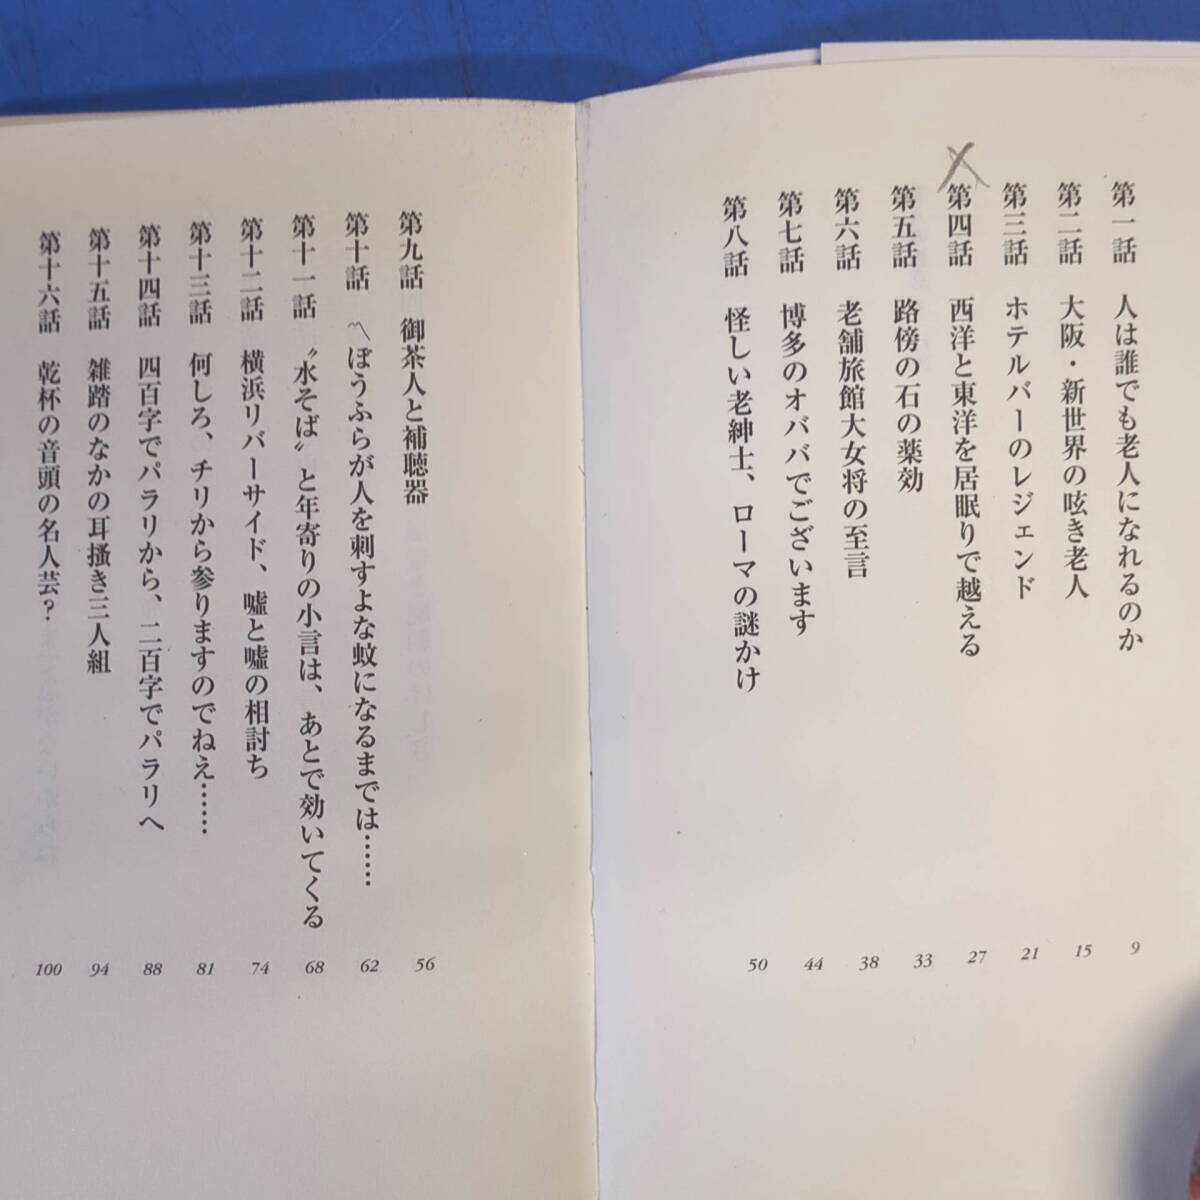 第一話 人は誰でも老人になれるのか 9
第二話 大阪・新世界の呟き老人 15
第三話 ホテルバーのレジェンド 21
第四話 西洋と東洋を居眠りで越える 27
第五話 路傍の石の薬効 33
第六話 老舗旅館大女将の至言 38
第七話 博多のオババでございます 44
第八話 怪しい老紳士、ローマの謎かけ 50
第九話 御茶人と補聴器 56
第十話 〽ぼうふらが人を刺すよな蚊になるまでは…… 62
第十一話 〝水そば〟と年寄りの小言は、あとで効いてくる 68
第十二話 横浜リバーサイド、嘘と嘘の相討ち 74
第十三話 何しろ、チリから参りますのでねえ…… 81
第十四話 四百字でパラリから、二百字でパラリへ 88
第十五話 雑踏のなかの耳搔き三人組 94
第十六話 乾杯の音頭の名人芸? 100